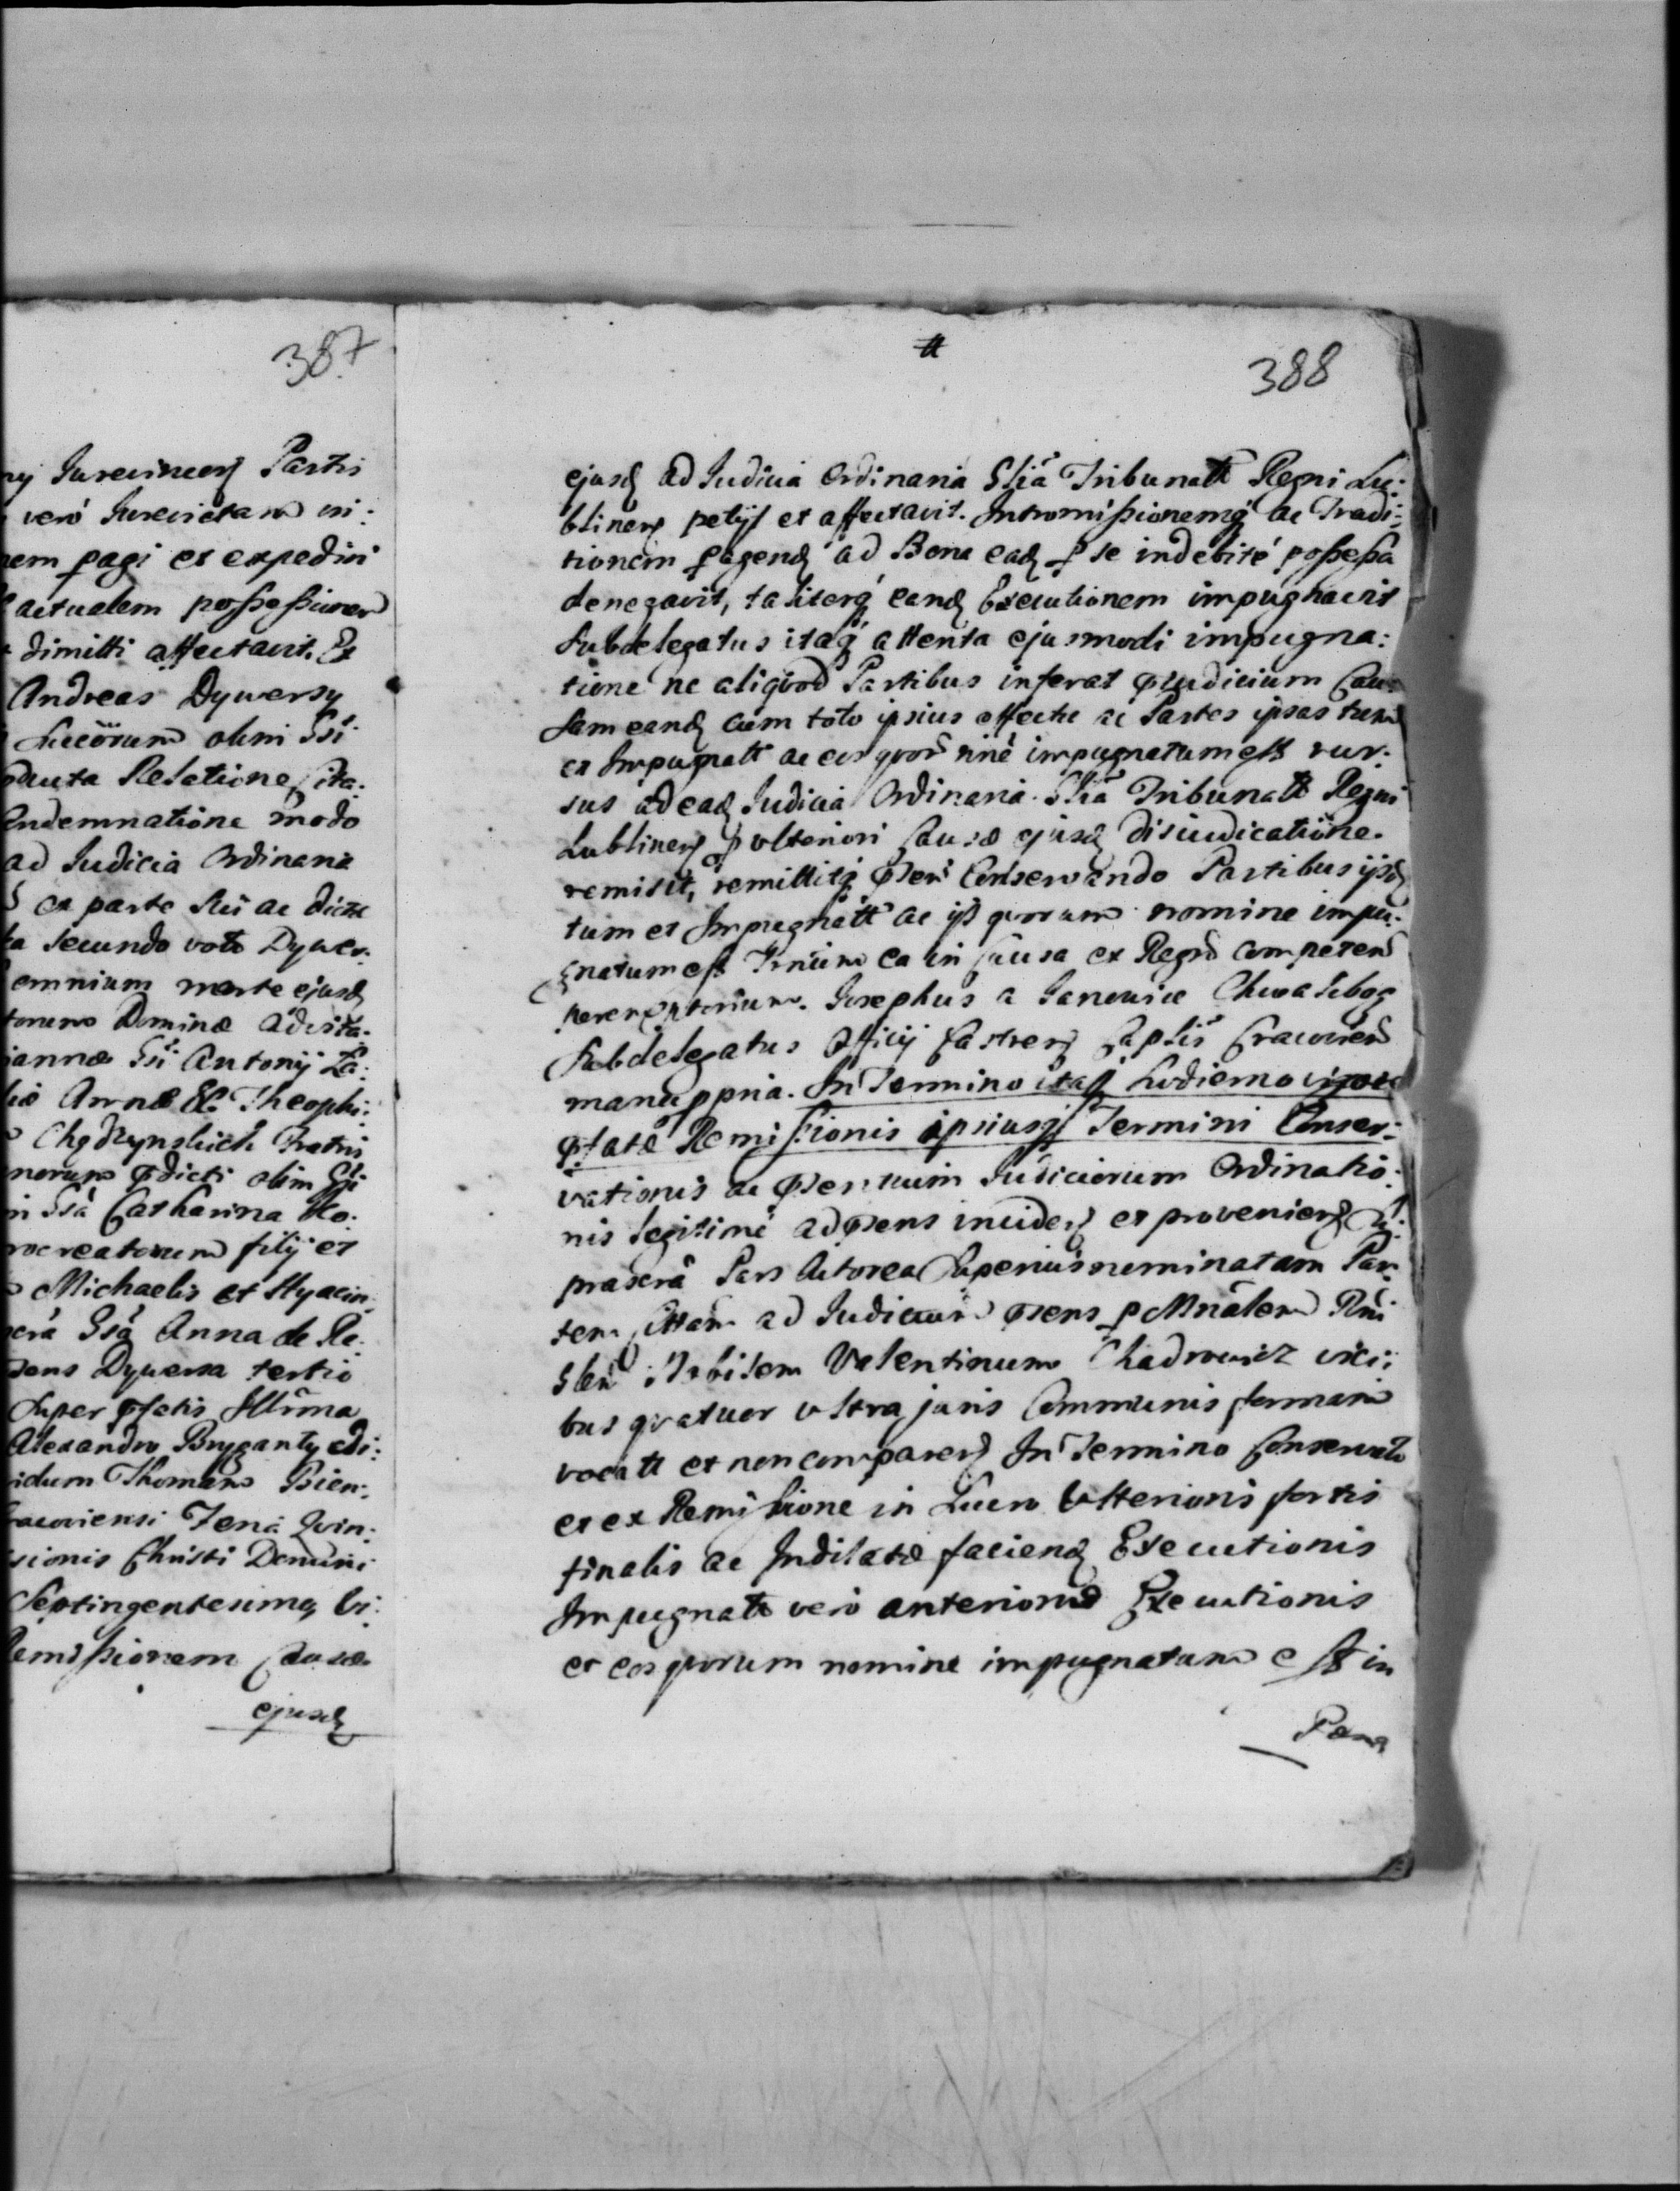 387
ny Jurevincen Partis
vero Jurevictam ni:
nem pagi et expediri
actualem possessiurer
dimitti affectavit. Et
Andreas Dywersy
Succorum olim Gsi
ducta Relatione, ita:
Condemnatione modo
ad Judicia Ordinaria
ex parte sui ac dictæ
ta secundo voto Dywer:
omnium morte ejusd
torum Dominæ Advita:
iannæ Gsi Antonij La:
liæ Annæ & Theophi:
Chądzynskich Fratris
norum pdicti olim Gsi
Gsa Catharina Ko:
rocreatorum filij et
Michaelis et Hyacin:
Gsa Anna de Re:
sens Dywersa tertio
super pfatis Illrma
Alexandro Bryganty edi:
idum Thomam Bien:
racoviensi Feria Qvin:
sionis Christi Domini
Septingentesimo, vi:
Remissionem Causæ
ejusd
388
ejusd ad Judicia Ordinaria Glia Tribunalt Regni Lu:
blinen petijt et affectavit. Intromissionemq ac Tradi:
tionem pagend ad Bona ead p se indebitè possessa
denegavit, taliterq eand Executionem impugnavit
Subdelegatus itaq attenta ejusmodi impugna:
tione ne aliqvod Partibus inferat pjudicium Cau:
sam eand cum toto ipsius effectu ac Partes ipsas tum
et Impugnatt ac eos qvor nne impugnatum est rur:
sus ad ead Judicia Ordinaria Glia Tribunalt Regni
Lublinen p ulteriori Causæ ejusd disiudicatione
remisit, remittitq pser Conservando Partibus ijsd
tum et Impugnatt ac ijs qvorum nomine impu:
gnatum est Trnum ea in Causa ex Regro competen
peremptorium. Josephus a Janowice Chwalibog
Subdelegatus Officij Castren Caplis Cracovien
manu ppria. In Termino itaq hodierno vigore
pfatæ Remissionis ipsiusq Termini Conser:
vationis ac psentium Judiciorum Ordinatio:
nis legitimè ad psens inciden et provenien
præserà Pars Actorea Superius nominatam Par
tem Cittam ad Judicium psens p Mnalem Rni
Glen Nobilem Valentinum Chadrowicz vici:
bus qvatuor ultra juris Communis formam
vocatt et non comparen In Termino Conservato
et ex Remissione in Lucro Ulterioris fortis
finalis ac Indilatæ faciend Executionis
Impugnatt vero anterioris Executionis
et eos qvorum nomine impugnatum est in
Pæna